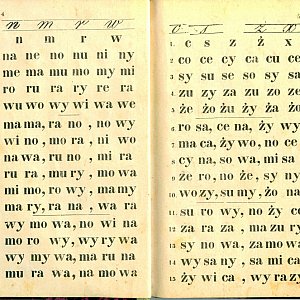 4
n m r w
n m r w
na ne no nu ni ny
me ma mu mo my mi
ro ru ra ry re ra
wu wo wy wi wa we
ma ma, ra no, no wy
wi no, mo ra, ni wo
na wa, ru no, mi ra
ru ra, mu ry, mo wa
mi mo, ro wy, ma my
ma ry, ra na, wa ra
wy mo wa, no wi na
mo ro wy, wy ry wa
wy my wa, ma ru na
mu ra wa, na mo wa
1. c s z ż x
2. co ce cy ca cu ce
3. sy su se so sy sa
4. zu zy za zu zo ze
5. że żo żu ży ża żo
6. ro sa, ce na, ży wy
7. ma ca, ży wo, no ce
8. cy na, so wa, mi sa
9. że ro, no że, sy ny
10. wo zy, su my, żo na
11. su ro wy, no ży co
12. za ra za, ma zu ry
13. sy no wa, za mo wa
14. wy sa ny, sa mi ca
15. ży wi ca, wy ra zy